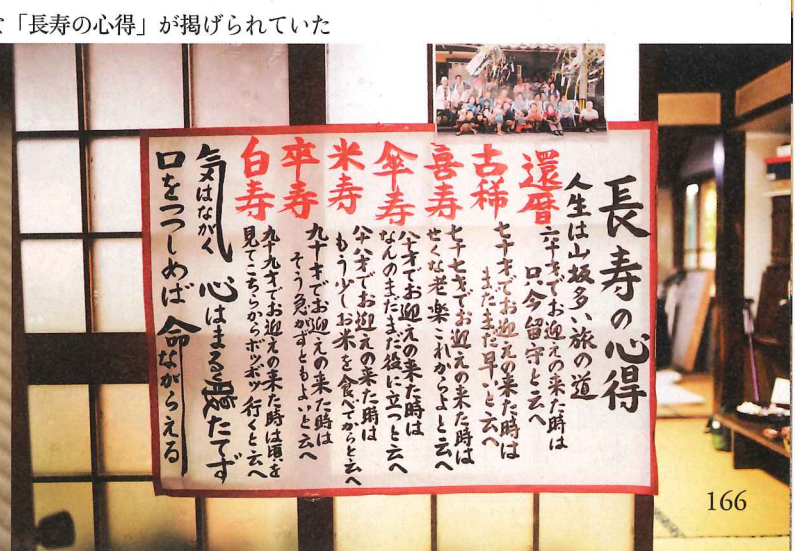 「長寿の心得」が掲げられていた
長寿の心得
人生は山坂多い旅の道
還暦
六十才でお迎えの来た時は
只今留守と云へ
古稀
七十才でお迎えの来た時は
まだまだ早いと云へ
喜寿
七十七才でお迎えの来た時は
せくな老楽これからよと云へ
傘寿
八十才でお迎えの来た時は
なんのまだまだ役に立つと云へ
米寿
八十八才でお迎えの来た時は
もう少しお米を食べてからと云へ
卒寿
九十才でお迎えの来た時は
そう急がずともよいと云へ
白寿
九十九才でお迎えの来た時は頃を
見てこちらからボツボツ行くと云へ
気はながく 心はまるく腹たてず
口をつつしめば命ながらえる
166